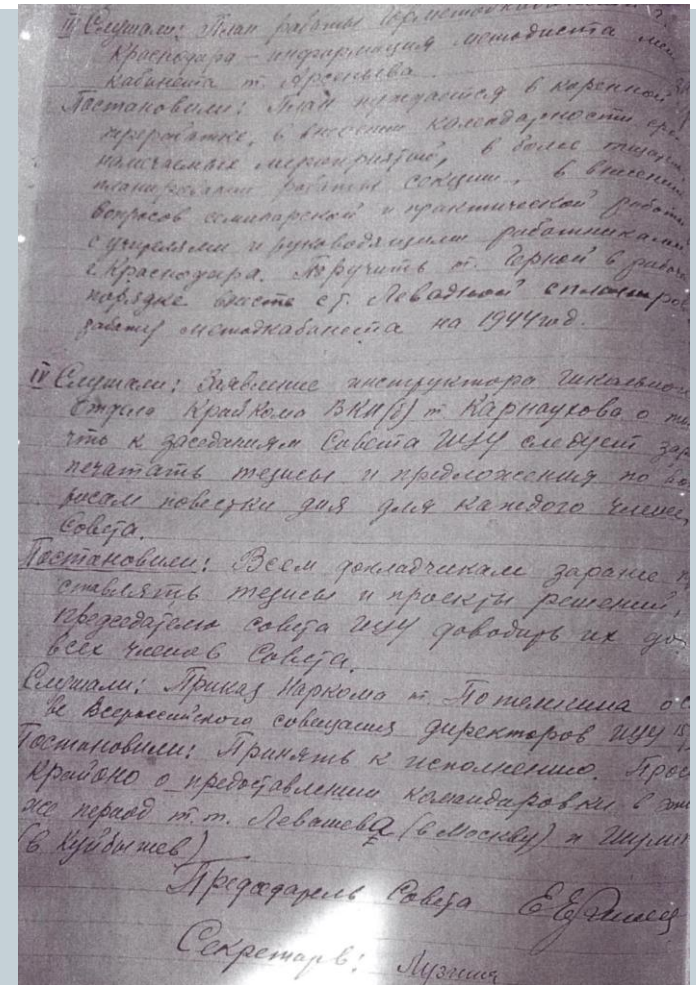 III Слушали: План работы Горметодкабинета г.
Краснодара – информация методиста мет
кабинета т. Арсеньева.
Постановили: План нуждается в коренной
переработке, в внесении календарности
намечаемых мероприятий, в более тщат
планировании работы секции, в внесении
вопросов семинарской и практической работы
с учителями и руководящими работниками
г. Краснодара. Поручить т. Горной в рабоч
порядке вместе с т. Левадной спланиров
работу методкабинета на 1944 год.
IV Слушали: Заявление инструктора школьного
отдела Крайкома ВКП(б) т. Карнаухова о т
что к заседаниям Совета ИУУ следует зар
печатать тезисы и предложения по во
росам повестки дня для каждого члена
Совета.
Постановили: Всем докладчикам заранее п
ставлять тезисы и проекты решений,
председателю совета ИУУ доводить их до
всех членов Совета.
Слушали: Приказ Наркома т. Потемкина о с
ве Всероссийского совещания директоров ИУУ
Постановили: Принять к исполнению. Прос
Крайоно о предоставлении командировки в это
же период т.т. Левашева (в Москву) и
(в Куйбышев)
Председатель Совета
Секретарь: